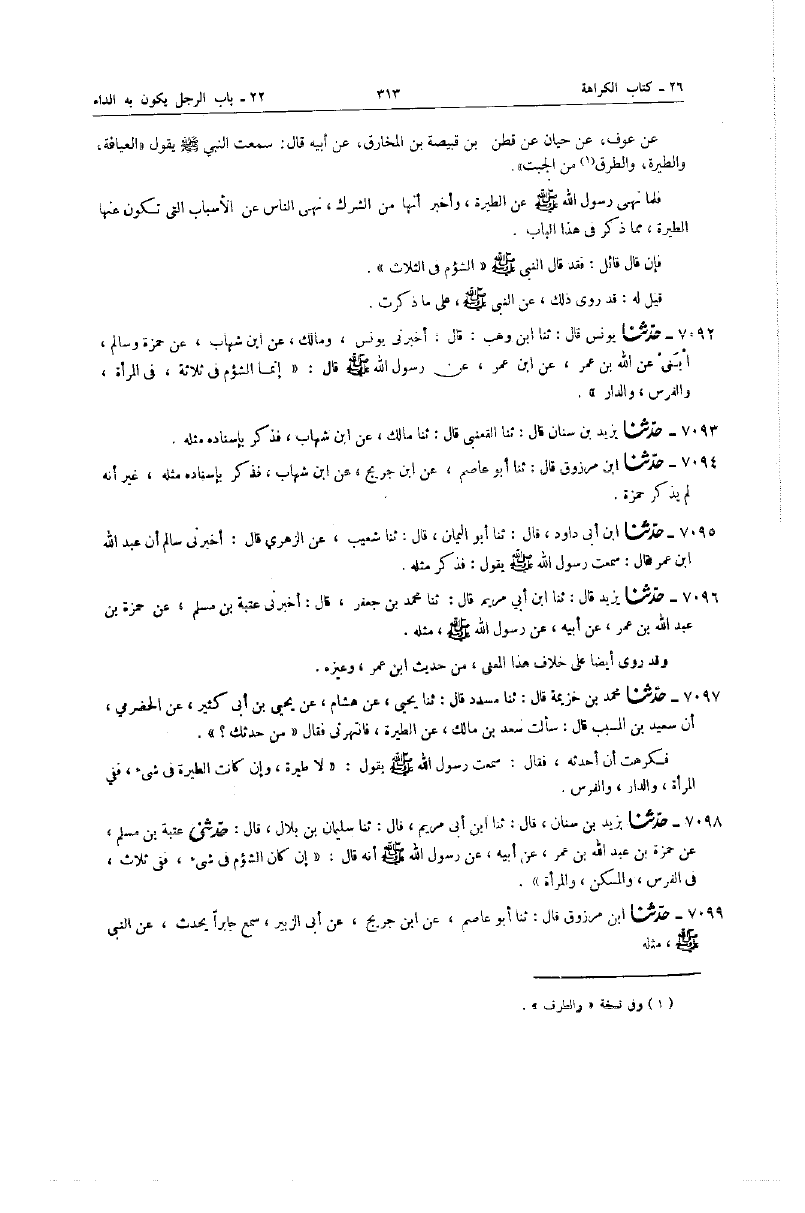 ٢٦ ـ كتاب الكراهة ٣١٣ ٢٢ ـ باب الرجل يكون به الداء
عن عوف، عن حيان عن قطن بن قبيصة بن المخارق، عن أبيه قال: سمعت النبي ﷺ يقول «العيافة،
والطيرة، والطرق(١) من الجبت».
فلما نهى رسول الله ﷺ عن الطيرة ، وأخبر أنها من الشرك ، نهى الناس عن الأسباب التى تكون عنها
الطيرة ، مما ذكر فى هذا الباب .
فإن قال قائل : فقد قال النبي ﷺ « الشؤم فى الثلاث » .
قيل له : قد روى ذلك ، عن النبي ﷺ ، على ما ذكرت .
٧٠٩٢ ـ حدّثنا يونس قال : ثنا ابن وهب : قال : أخبرنى يونس ، ومالك ، عن ابن شهاب ، عن حمزة وسالم ،
ابنى عن الله بن عمر ، عن ابن عمر ، عن رسول الله ﷺ قال : « إنما الشؤم فى ثلاثة ، فى المرأة ،
والفرس ، والدار » .
٧٠٩٣ ـ حدّثنا يزيد بن سنان قال : ثنا القعنبى قال : ثنا مالك ، عن ابن شهاب ، فذكر بإسناده مثله .
٧٠٩٤ ـ حدّثنا ابن مرزوق قال : ثنا أبو عاصم ، عن ابن جريج ، عن ابن شهاب ، فذكر بإسناده مثله ، غير أنه
لم يذكر حمزة .
٧٠٩٥ ـ حدّثنا ابن أبى داود ، قال : ثنا أبو اليمان ، قال : ثنا شعيب ، عن الزهري قال : أخبرنى سالم أن عبد الله
ابن عمر قال : سمعت رسول الله ﷺ يقول : فذكر مثله .
٧٠٩٦ ـ حدّثنا يزيد قال : ثنا ابن أبي مريم قال : ثنا محمد بن جعفر ، قال : أخبرنى عتبة بن مسلم ، عن حمزة بن
عبد الله بن عمر ، عن أبيه ، عن رسول الله ﷺ ، مثله .
وقد روى أيضا على خلاف هذا المعنى ، من حديث ابن عمر ، وغيره .
٧٠٩٧ ـ حدّثنا محمد بن خزيمة قال : ثنا مسدد قال : ثنا يحيى ، عن هشام ، عن يحيى بن أبى كثير ، عن الحضرمي ،
أن سعيد بن المسيب قال : سألت سعد بن مالك ، عن الطيرة ، فانتهرنى فقال « من حدثك ؟ » .
فكرهت أن أحدثه ، فقال : سمعت رسول الله ﷺ يقول : « لا طيرة ، وإن كانت الطيرة فى شىء ، ففي
المرأة ، والدار ، والفرس .
٧٠٩٨ ـ حدّثنا يزيد بن سنان ، قال : ثنا ابن أبى مريم ، قال : ثنا سليمان بن بلال ، قال : حدّثنى عتبة بن مسلم ،
عن حمزة بن عبد الله بن عمر ، عن أبيه ، عن رسول الله ﷺ أنه قال : « إن كان الشؤم فى شىء ، ففى ثلاث ،
فى الفرس ، والمسكن ، والمرأة » .
٧٠٩٩ ـ حدّثنا ابن مرزوق قال : ثنا أبو عاصم ، عن ابن جريج ، عن أبى الزبير ، سمع جابراً يحدث ، عن النبي
ﷺ ، مثله
(١) وفى نسخة « والطرف » .